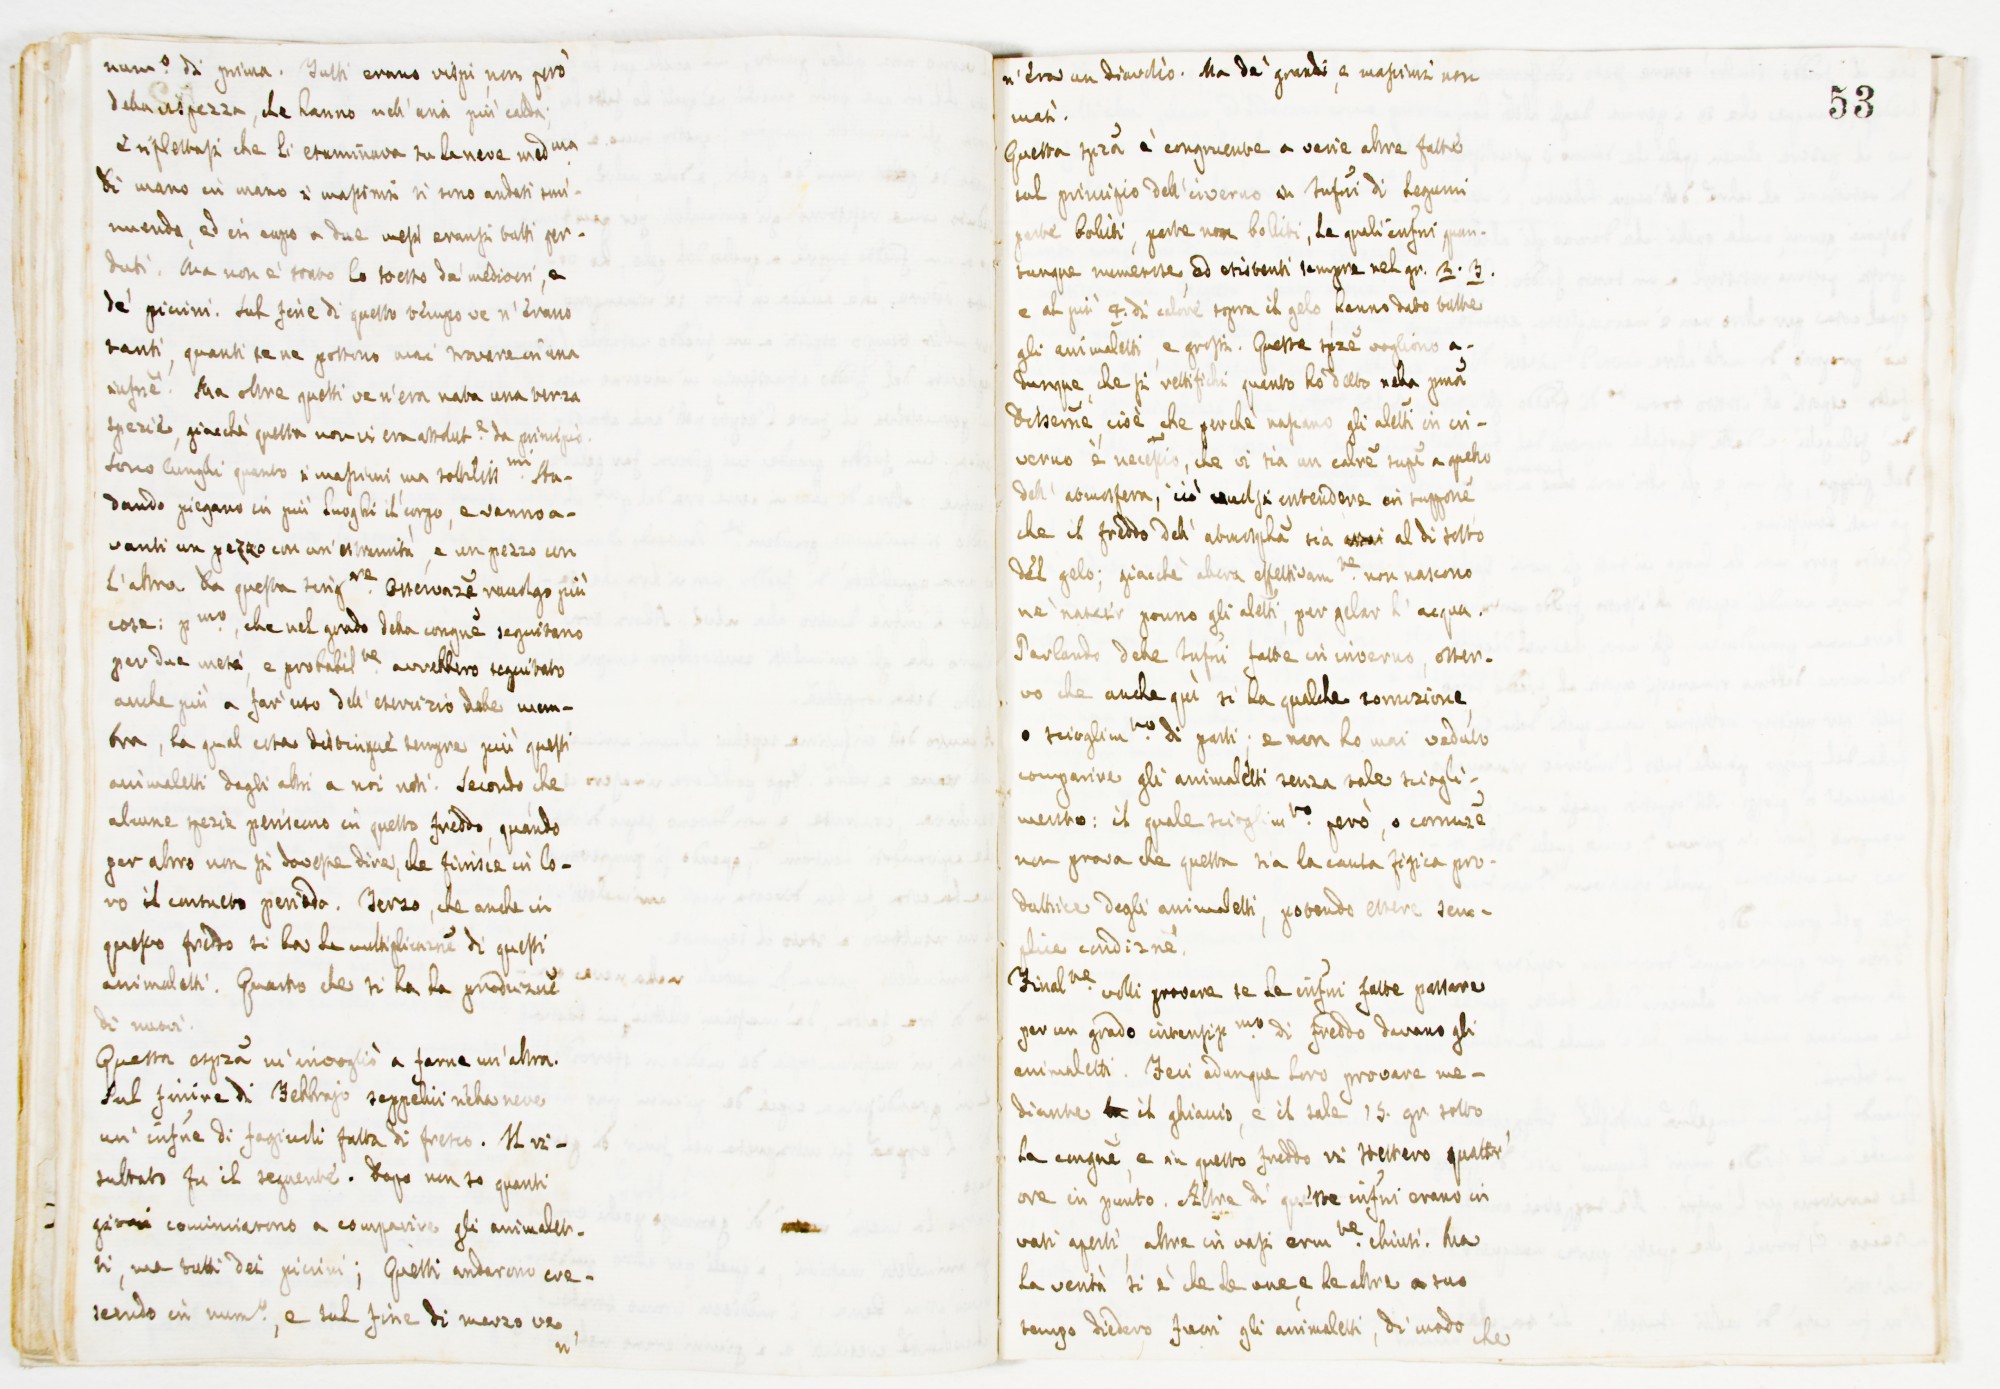 num.° di prima. Tutti erano vispi, non però
della vispezza, che hanno nell'aria più calda;
E riflettasi che li esaminava su la neve med.ma
Di mano in mano i massimi si sono andati smi-
nuendo, ed in capo a due mesi eransi tutti per-
duti. Ma non è stato lo stesso de' mediocri, e
de' piccini. Sul fine di questo tempo ve n'erano
tanti, quanti se ne possono mai trovare in una
infusne. Ma oltre questi ve n'era nata una terza
spezie, giacchè questa non vi era assolut.e da principio.
Sono lunghi quanto i massimi ma sottiliss.mi
dando piegano in più luoghi il corpo, e vanno a-
vanti un pezzo con un'estremità, e un pezzo con
l'altra. Da questa osservaze raccolgo più
cose: p.mo, che nel grado della congne seguitano
per due mesi, e probabil.te avrebbero seguitato
anche più a far uso dell'esercizio delle mem-
bra, la qual cosa distingue sempre più questi
animaletti dagli altri a noi noti. Secondo, che
alcune spezie periscono in questo freddo, quando
per altro non si dovesse dire, che finisce in lo-
ro il consueto periodo. Terzo, che anche in
questo freddo si ha la multiplicazne di questi
animaletti. Quarto che si ha la produizne
di nuovi.
Questa esprza m'invogliò a farne un'altra.
Sul finire di Febbrajo seppelii nella neve
un'infusne di fagiuoli fatta di fresco. Il ri-
sultato fu il seguente. Dopo non so quanti
giorni cominciarono a comparire gli animalet-
ti, ma tutti dei piccini; Questi andarono cre-
scendo in num.°, e sul fine di marzo ve
n'
53
n'era un diavolio. Ma de' grandi, e massimi non
mati.
Questa sprza è congruente a varie altre fatte
sul principio dell'inverno in infusni di legumi
parte bolliti, parte non bolliti, le quali infusni quan-
tunque numerose, ed esistenti sempre nel gr. 2. 3.
e al più 4. di calore sopra il gelo hanno dato tutte
gli animaletti, e grossi. Queste sprze vogliono a-
dunque, che si rettifichi quanto ho detto nella pma
Dissertne, cioè, che perchè nascano gli aletti in in-
verno è necessio, che vi sia un calre supe a quello
dell'atmosfera, ciò intendere in supposne
che il freddo dell'atmosfera sia al di sotto
del gelo; giacchè allora effettivam.te non nascono
nè nascer ponno gli aletti, per gelar l'acqua.
Parlando delle infusni fatte in inverno, osser-
vo che anche quì si ha qualche corruzione,
o scioglim.to di parti; e non ho mai veduto
comparire gli animaletti senza tale sciogli-
mento: il quale scioglim.to però, o corruze
non prova che questa sia la causa fisica pro-
duttrice degli animaletti, potendo essere sem-
plice condizne.
Final.te volli provare se le infusni fatte passare
per un grado intensiss.mo di freddo davano gli
animaletti. Feci adunque loro provare me-
diante il ghiaccio, e il sale 15. gr. sotto
la congne, e in questo freddo vi stettero quattr'
ore in punto. Altre di queste infusni erano in
vasi aperti, altre in vasi erm.te chiusi. Ma
la verità si è che le une, e le altre a suo
tempo diedero fuori gli animaletti, di modo che